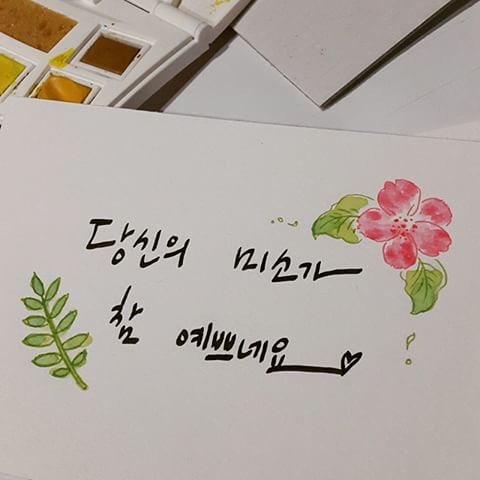 당신의 미소가
참 예쁘네요